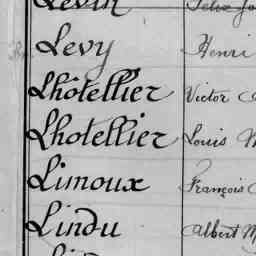 Levin
Levy Henri
Lhôtellier Victor
Lhotellier Louis
Limoux François
Lindu Albert